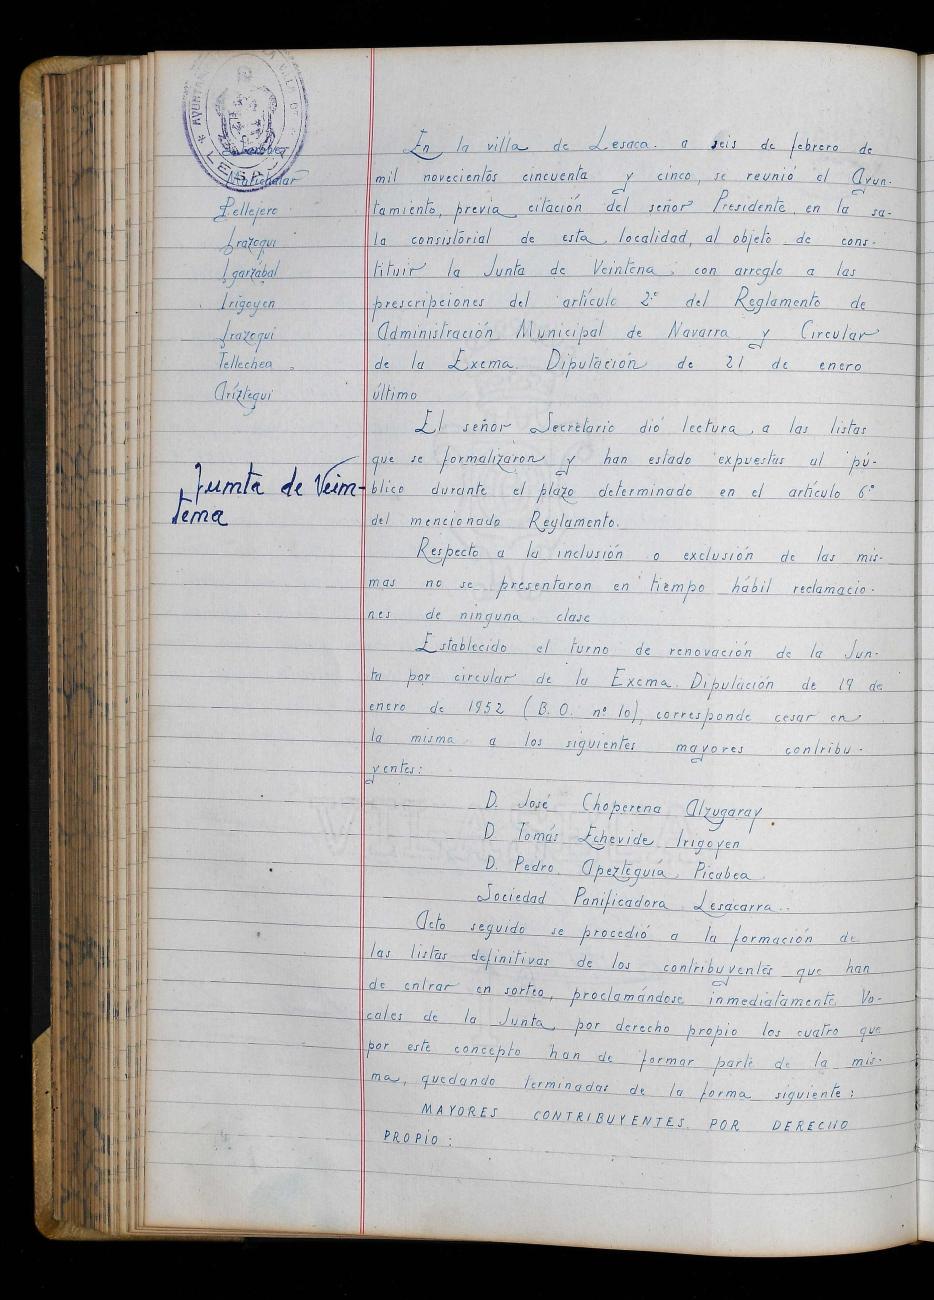 AYUNTAM
VILLA DE
LESACA
Marichalar
Pellejero
Irazoqui
Igarzábal
Irigoyen
Irazoqui
Tellechea
Aríztegui
Junta de Vein-
tena
En la villa de Lesaca a seis de febrero de
mil novecientos cincuenta y cinco, se reunió el Ayun-
tamiento, previa citación del señor Presidente en la sa-
la consistorial de esta localidad, al objeto de cons-
tituir la Junta de Veintena con arreglo a las
prescripciones del artículo 2º del Reglamento de
Administración Municipal de Navarra y Circular
de la Excma. Diputación de 21 de enero
último
El señor Secretario dió lectura a las listas
que se formalizaron y han estado expuestas al pú-
blico durante el plazo determinado en el artículo 6º
del mencionado Reglamento.
Respecto a la inclusión o exclusión de las mis-
mas no se presentaron en tiempo hábil reclamacio-
nes de ninguna clase
Establecido el turno de renovación de la Jun-
ta por circular de la Excma. Diputación de 19 de
enero de 1952 (B.O. nº 10), corresponde cesar en
la misma a los siguientes mayores contribu-
yentes:
D. José Choperena Alzugaray
D Tomás Echevide Irigoyen
D. Pedro Apezteguía Picabea
Sociedad Panificadora Lesacarra.
Acto seguido se procedió a la formación de
las listas definitivas de los contribuyentes que han
de entrar en sorteo, proclamándose inmediatamente Vo-
cales de la Junta por derecho propio los cuatro que
por este concepto han de formar parte de la mis-
ma, quedando terminadas de la forma siguiente:
MAYORES CONTRIBUYENTES POR DERECHO
PROPIO: